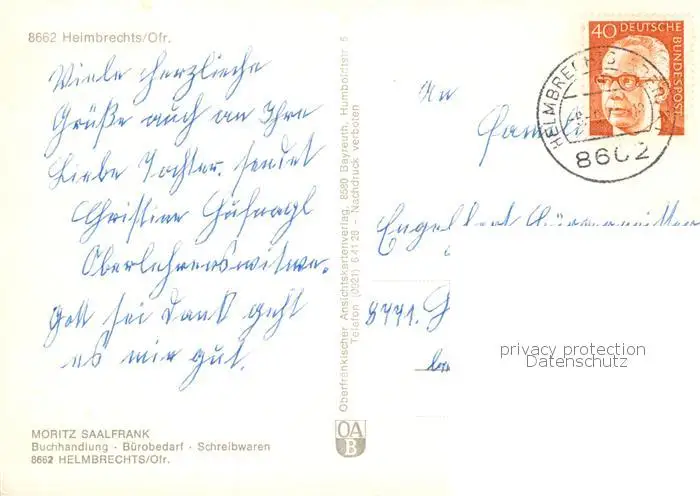 8662 Helmbrechts/Ofr.
Viele herzliche
Grüße auch an Ihre
Liebe Tochter. sendet
Christiane Hufnagl
Oberlehrerswitwe.
Gott sei Dank geht
es mir gut.
MORITZ SAALFRANK
Buchhandlung · Bürobedarf · Schreibwaren
8662 HELMBRECHTS/Ofr.
Oberfränkischer Ansichtskartenverlag, 8580 Bayreuth, Humboldtstr 5
Telefon (0921) 6 41 28 - Nachdruck verboten
OA
B
40 DEUTSCHE
BUNDESPOST
HELMBRECHTS
8662
An
Famil
Engelbert
8771.
privacy protection
Datenschutz